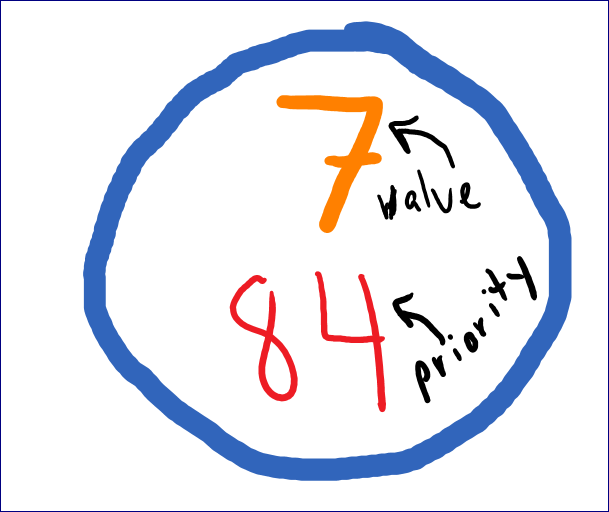 7
value
84
priority